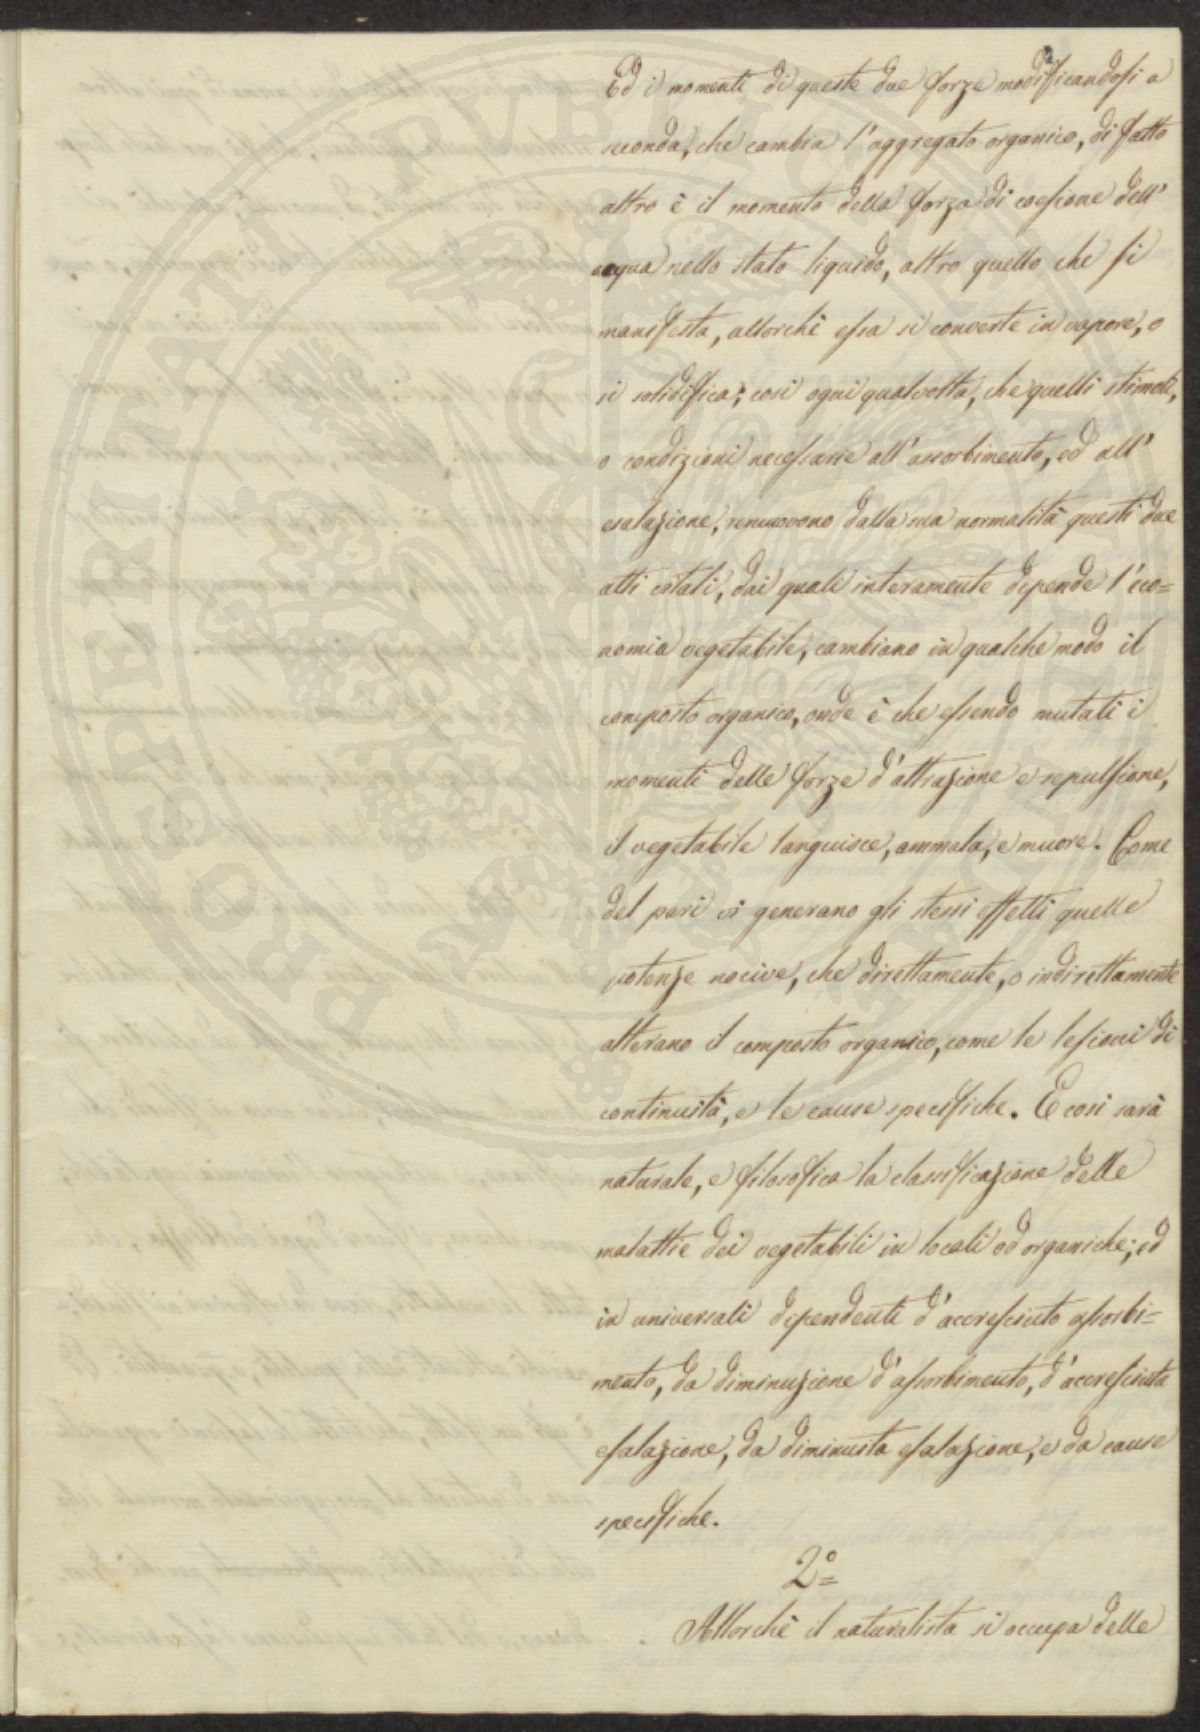 Ed i momenti di queste due forze modificandosi a
seconda, che cambia l'aggregato organico, di fatto
altro è il momento della forza di coesione dell'
acqua nello stato liquido, altro quello che si
manifesta, allorchè essa si converte in vapore, o
si solidifica; così ogni qualvolta, che quelli stimoli,
o condizioni necessarie all'assorbimento, ed all'
esalazione, remuovono dalla sua normalità questi due
atti vitali, dai quali interamente dipende l'eco=
nomia vegetabile, cambiano in qualche modo il
composto organico, onde è che essendo mutati i
momenti delle forze d'attrazione e repulsione,
il vegetabile languisce, ammala, e muore. Come
del pari vi generano gli stessi effetti quelle
potenze nocive, che direttamente, o indirettamente
alterano il composto organico, come le lesioni di
continuità, e le cause specifiche. E così sarà
naturale, e filosofica la classificazione delle
malattie dei vegetabili in locali ed organiche; ed
in universali dipendenti d'accresciuto assorbi=
mento, da diminuzione d'assorbimento, d'accresciuta
esalazione, da diminuita esalazione, e da cause
specifiche.
2º=
Allorchè il naturalista si occupa delle
PROSPERITATI PUBLICAE